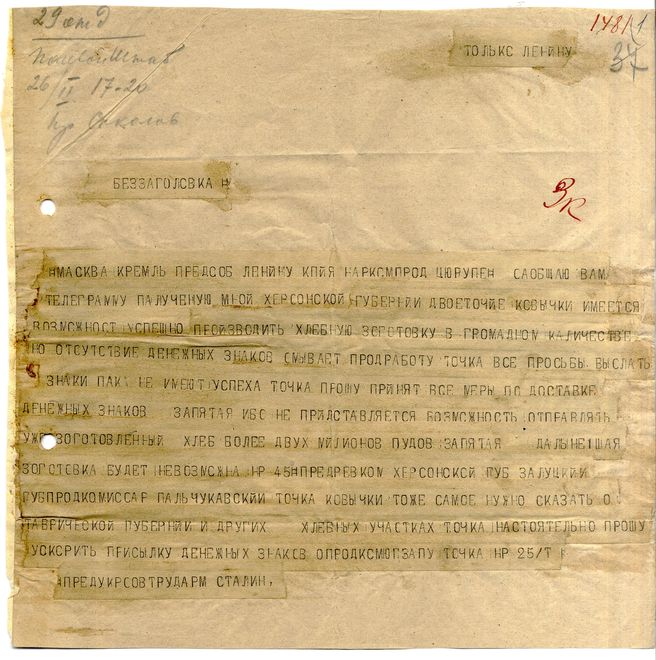 29 отд
148/1
ТОЛЬКС ЛЕНИНУ
37
26/II 17-20
Пр Соколов
БЕЗЗАГОЛСВКА Н
Зк
НМАСКВА КРЕМЛЬ ПРЕДСОБ ЛЕНИНУ КПИЯ НАРКОМПРОД ЦЮРУПЕН САОБЩАЮ ВАМ
ТЕЛЕГРАММУ ПАЛУЧЕНУЮ МНОЙ ХЕРСОНСКОЙ ГУБЕРНИИ ДВОЕТОЧИЕ КОВЫЧКИ ИМЕЕТСЯ
ВОЗМОЖНОСТ УСПЕШНО ПЕОИЗВОДИТЬ ХЛЕБНУЮ ЗОГОТОВКУ В ГРОМАДНОМ КАЛИЧЕСТВЕ
НО ОТСУТСТВИЕ ДЕНЕЖНЫХ ЗНАКОВ СМЫВАЕТ ПРОДРАБОТУ ТОЧКА ВСЕ ПРОСЬБЫ ВЫСЛАТЬ
ЗНАКИ ПАКА НЕ ИМЕЮТ УСПЕХА ТОЧКА ПРОШУ ПРИНЯТ ВСЕ МЕРЫ ПО ДОСТАВКЕ
ДЕНЕЖНЫХ ЗНАКОВ ЗАПЯТАЯ ИБС НЕ ПРИДСТАВЛЯЕТСЯ ВОЗМОЖНОСТЬ ОТПРАВЛЯТЬ
УЖЕ ЗОГОТОВЛЕННЫЙ ХЛЕБ БОЛЕЕ ДВУХ МИЛИОНОВ ПУДОВ ЗАПЯТАЯ ДАЛЬНЕЙШАЯ
ЗОГОТСВКА БУДЕТ НЕВОЗМОЖНА НР 45НПРЕДРЕВКОМ ХЕРСОНСКОЙ ГУБ ЗАЛУЦКИЙ
ГУБПРОДКОМИССАР ПАЛЬЧУКАВСКИЙ ТОЧКА КОВЫЧКИ ТОЖЕ САМОЕ НУЖНО СКАЗАТЬ О
ТАВРИЧЕСКОЙ ГУБЕРНИИ И ДРУГИХ ХЛЕБНЫХ УЧАСТКАХ ТОЧКА НАСТОЯТЕЛЬНО ПРОШУ
УСКСРИТЬ ПРИСЫЛКУ ДЕНЕЖНЫХ ЗНАКОВ ОПРОДКСМЮГЗАПУ ТОЧКА НР 25/Т Н
НПРЕДУКРСОВТРУДАРМ СТАЛИН,